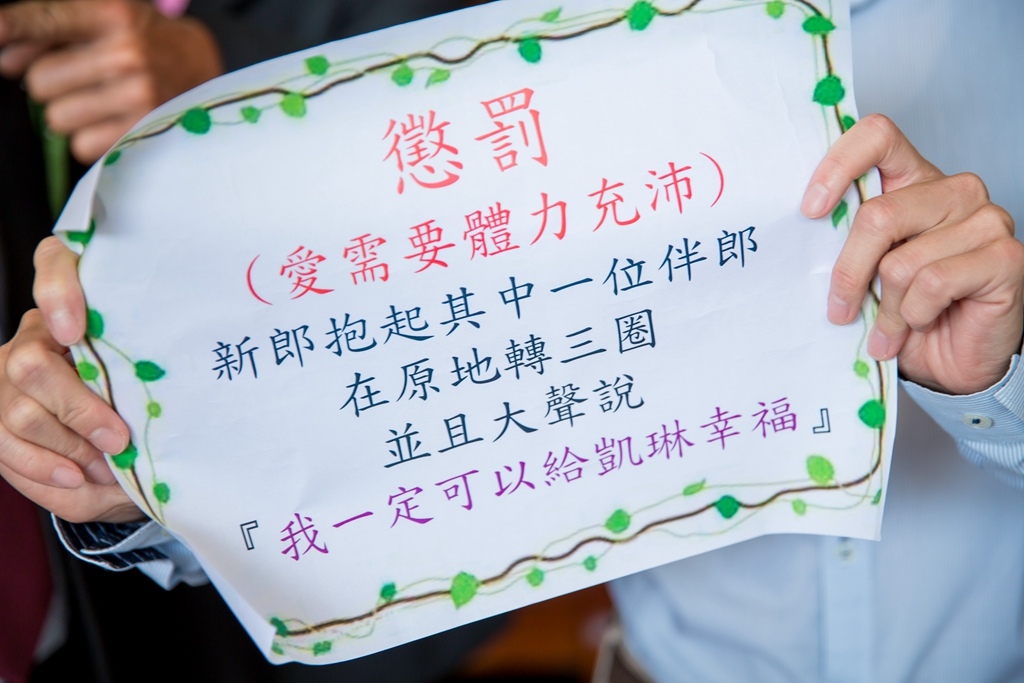 懲罰
（愛需要體力充沛）
新郎抱起其中一位伴郎
在原地轉三圈
並且大聲說
『我一定可以給凱琳幸福』